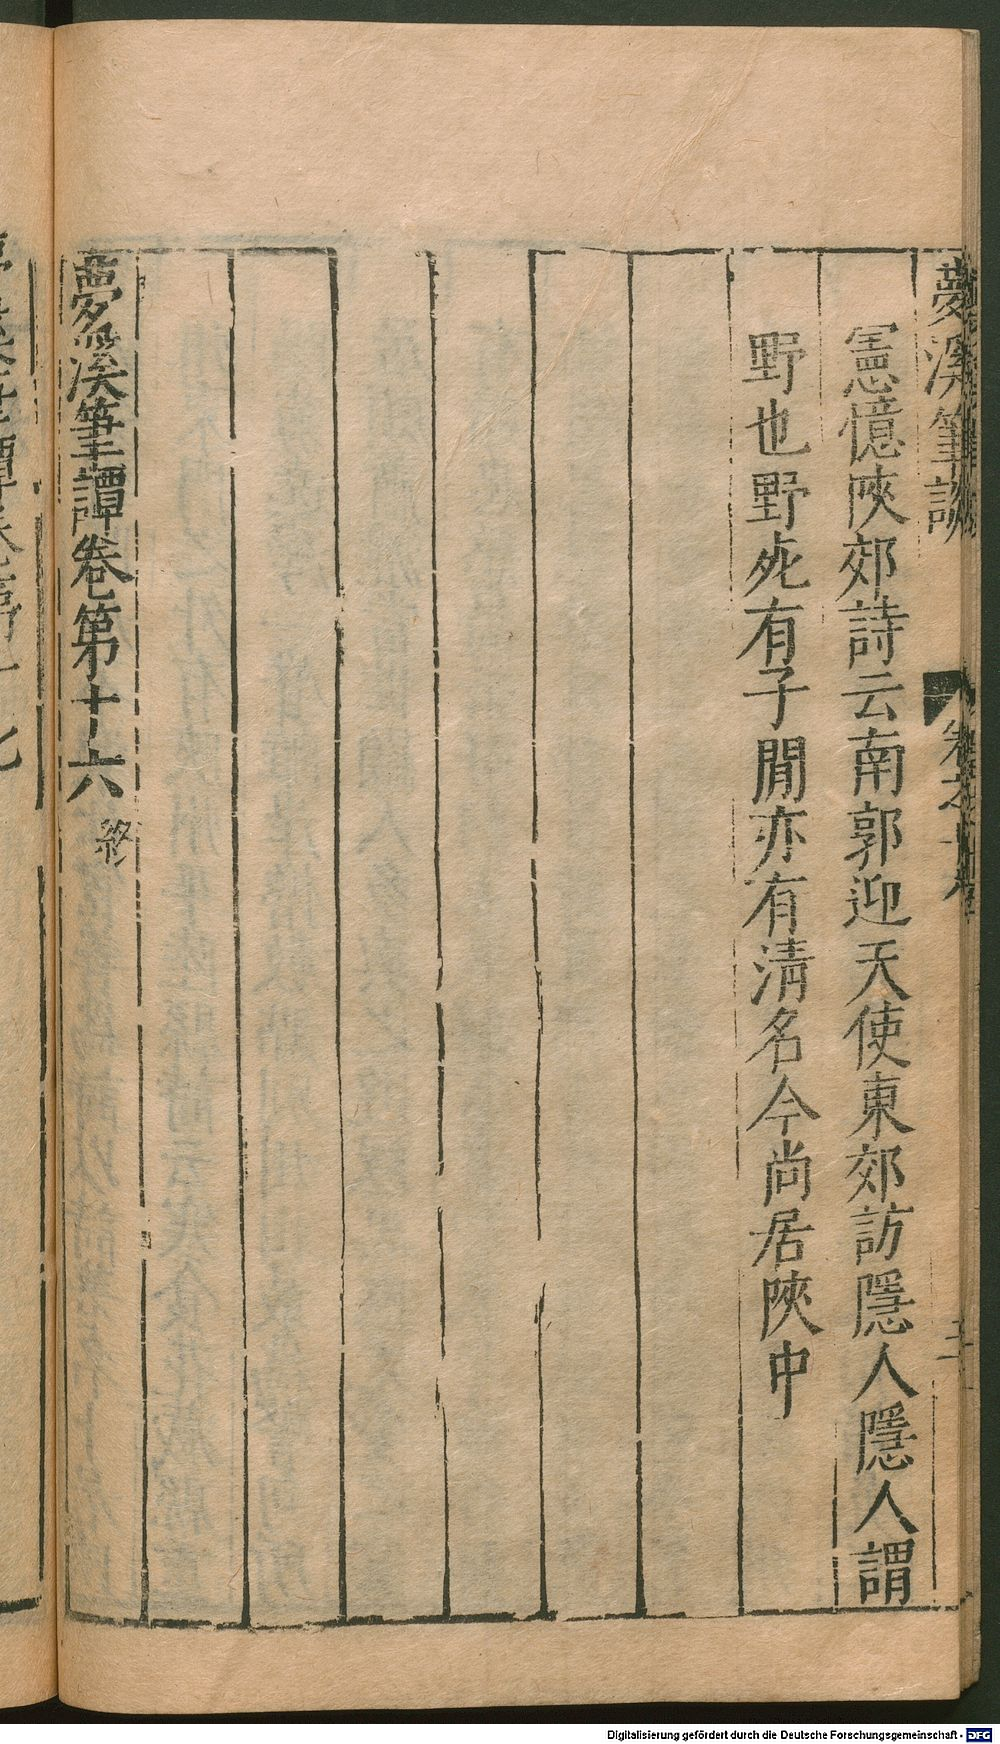 夢溪筆談
卷之十六
憲憶陜郊詩云南郭迎天使東郊訪隱人隱人謂
野也野死有子閒亦有清名今尚居陜中
夢溪筆譚卷第十六 終
Digitalisierung gefördert durch die Deutsche Forschungsgemeinschaft - DFG